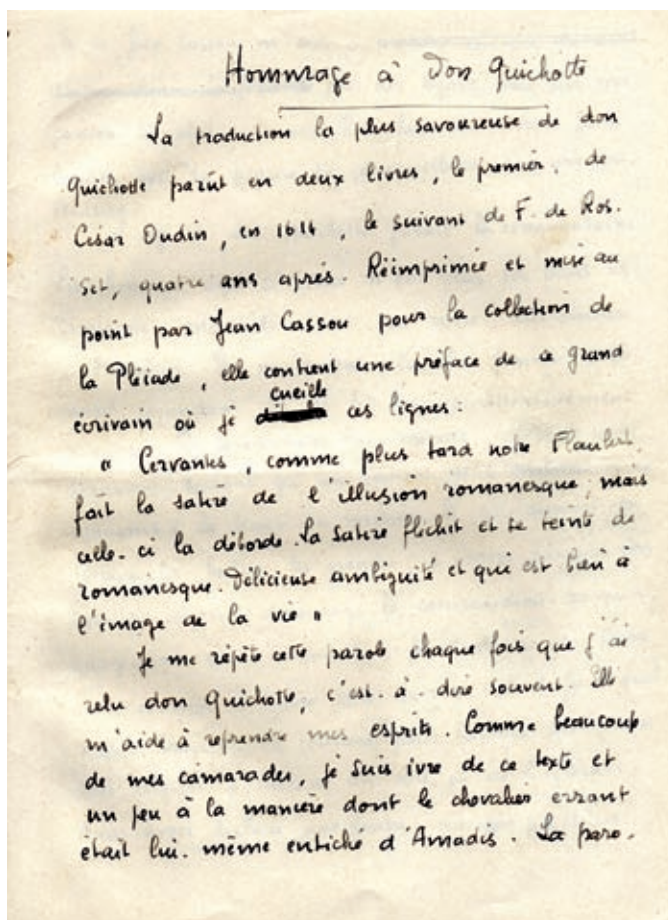 Hommage à Don Quichotte
La traduction la plus savoureuse de don
Quichotte parût en deux livres, le premier, de
César Oudin, en 1614, le suivant de F. de Ros.
Set, quatre ans après. Réimprimée et mise au
point par Jean Cassou pour la collection de
la Pléiade, elle contient une préface de ce grand
écrivain où je cueille ces lignes :
" Cervantes, comme plus tard notre Flaubert,
fait la satire de l'illusion romanesque, mais
celle-ci la déborde. La satire fléchit et se teinte de
romanesque. Délicieuse ambiguïté et qui est bien à
l'image de la vie "
Je me répète cette parole chaque fois que j'ai
relu don Quichotte, c'est-à-dire souvent. Elle
m'aide à reprendre mes esprits. Comme beaucoup
de mes camarades, je suis ivre de ce texte et
un peu à la manière dont le chevalier errant
était lui-même entiché d'Amadis. La paro-